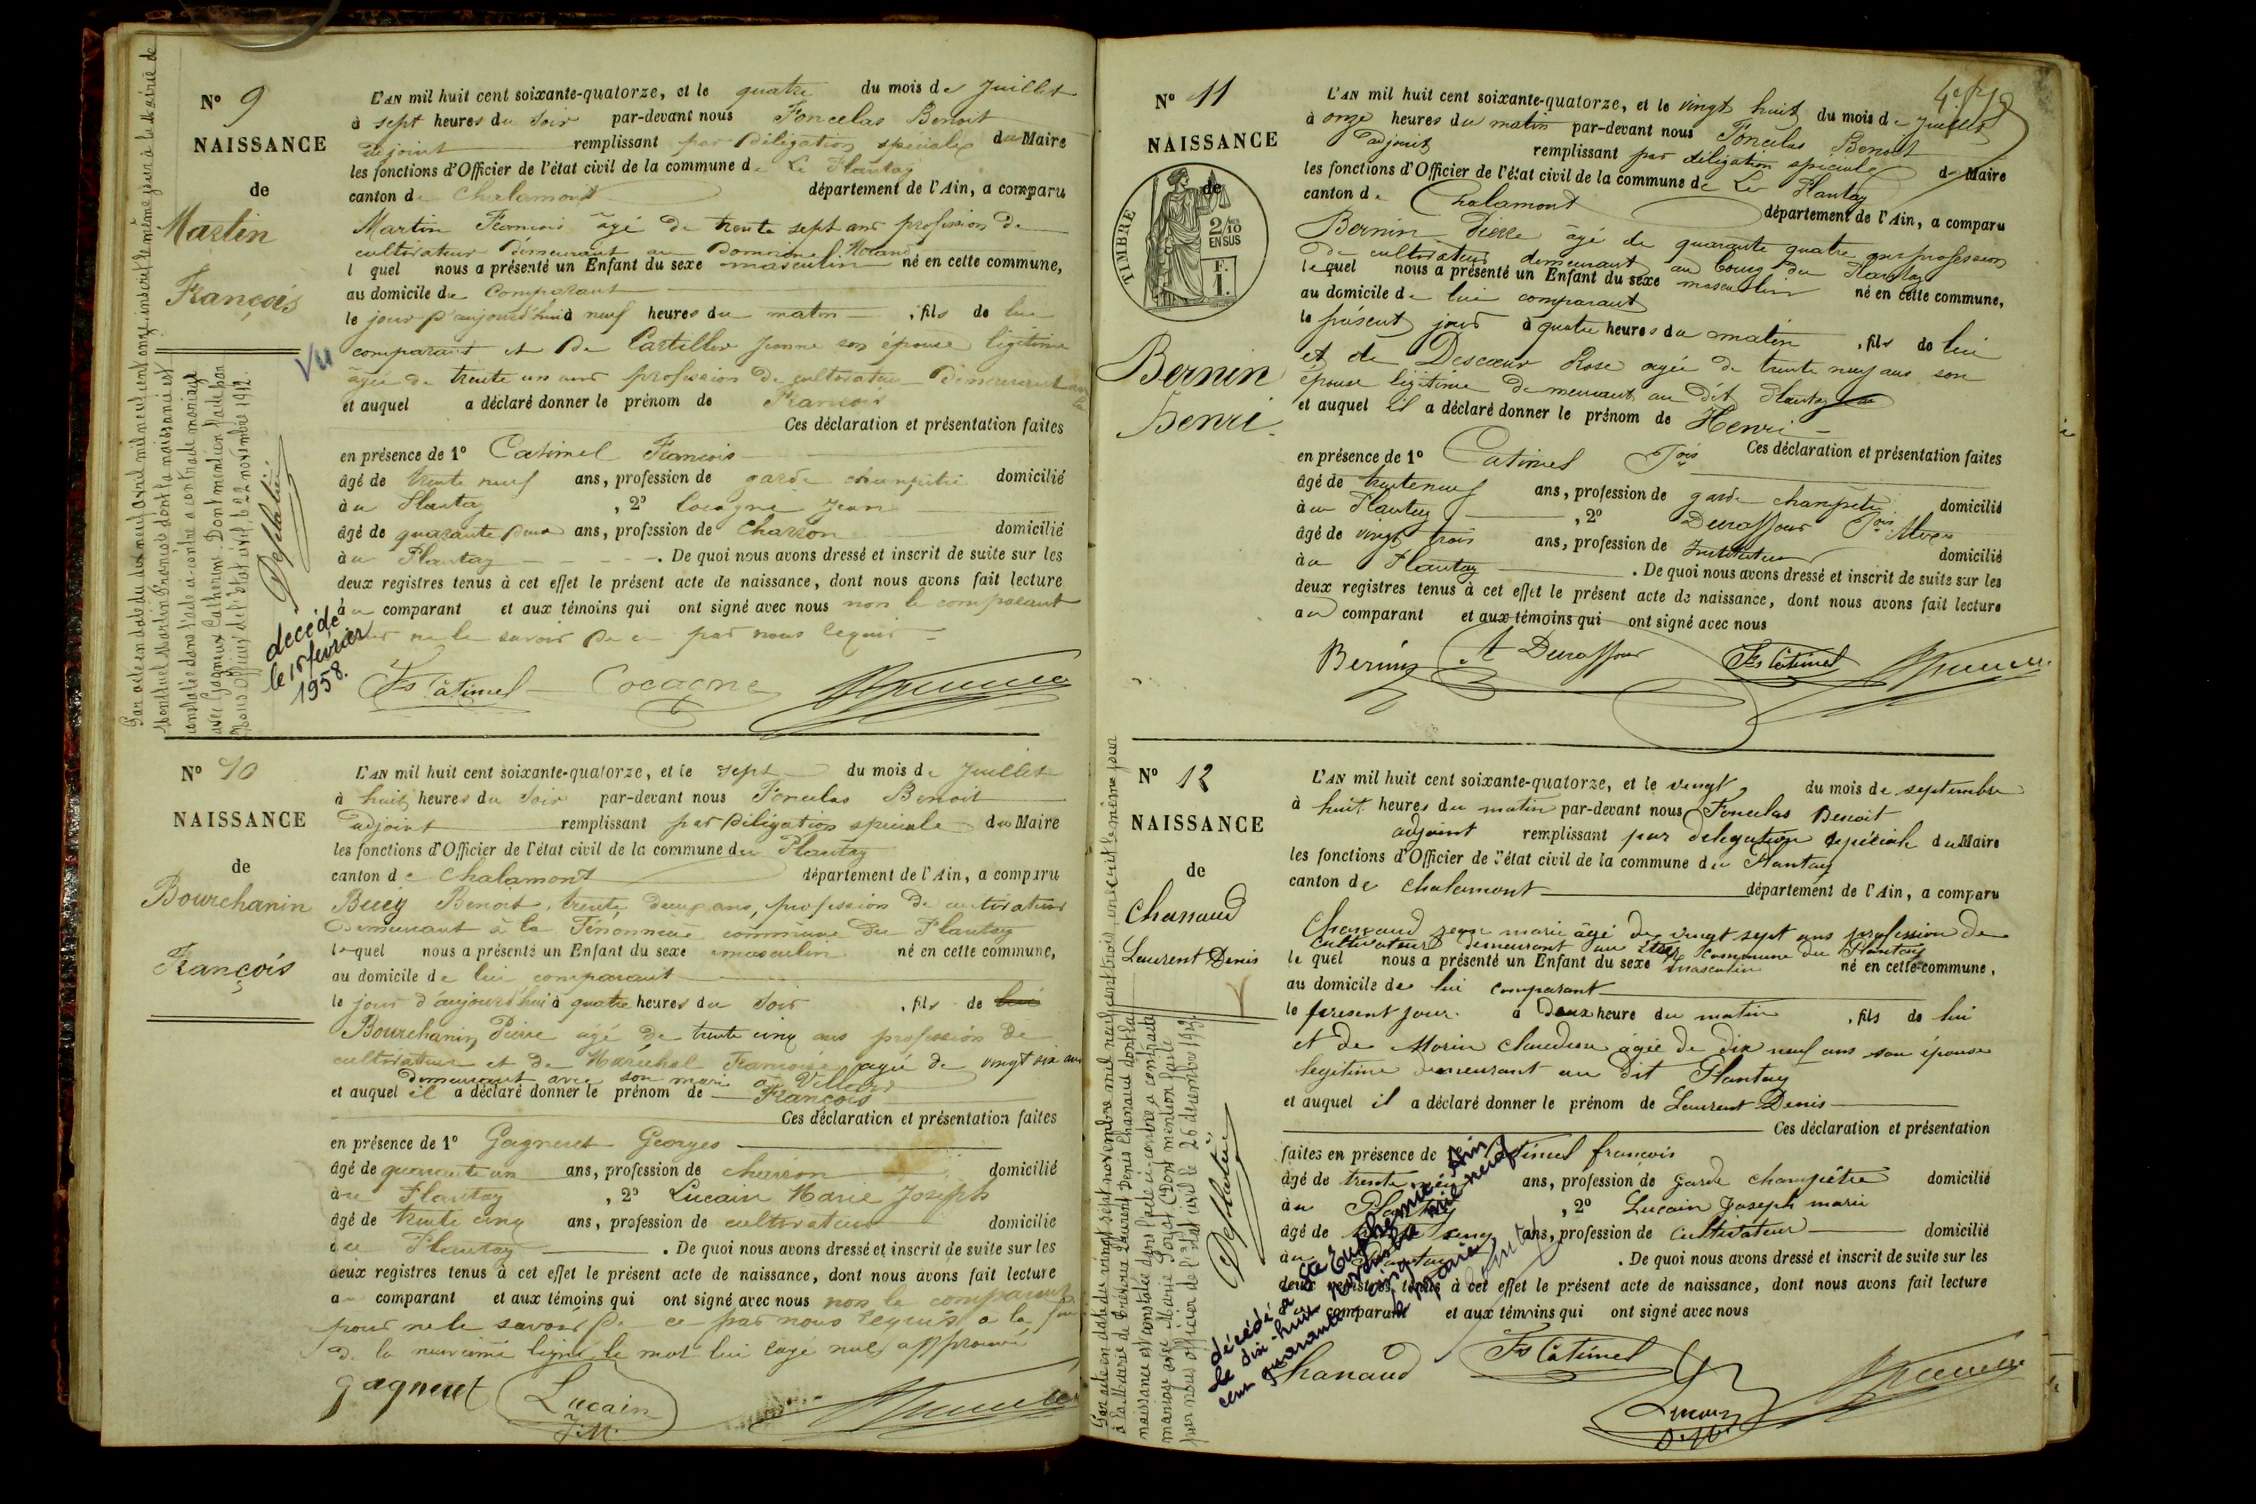 N° 9
NAISSANCE
de
Martin
François
L'AN mil huit cent soixante-quatorze, et le quatre du mois de Juillet
à sept heures du soir par-devant nous Foncelas Benoit
adjoint remplissant par Déligation spéciale du Maire
les fonctions d'Officier de l'état civil de la commune de Le Plantay
canton de Chalamont département de l'Ain, a comparu
Martin François âgé de trente sept ans profession de
cultivateur demeurant au Domaine
l quel nous a présenté un Enfant du sexe masculin né en cette commune,
au domicile du Comparant
le jour d'aujourd'hui à neuf heures du matin , fils de lui
comparant et de Jeanne son épouse légitime
âgée de trente un ans profession de cultivateur demeurant
et auquel a déclaré donner le prénom de François
Ces déclaration et présentation faites
en présence de 1° Catimel François
âgé de trente neuf ans, profession de garde champêtre domicilié
à au Plantay , 2° Cocagne Jean
âgé de quarante deux ans, profession de Charron domicilié
à au Plantay . De quoi nous avons dressé et inscrit de suite sur les
deux registres tenus à cet effet le présent acte de naissance, dont nous avons fait lecture
au comparant et aux témoins qui ont signé avec nous non le comparant
pour ne le savoir de ce par nous requis
Fs Catimel Cocagne
Par acte en date du dix neuf avril mil neuf cent onze inscrit le même jour à la Mairie de
Montluel Martin François dont la naissance est
constatée dans l'acte ci-contre a contracté mariage
avec Gagneux Catherine. Dont mention faite par
Nous Officier de l'état civil, le 22 novembre 1912.
décédé
le 15 février
1958.
Vu
N° 10
NAISSANCE
de
Bourchanin
François
L'AN mil huit cent soixante-quatorze, et le sept du mois de Juillet
à huit heures du soir par-devant nous Foncelas Benoit
adjoint remplissant par Déligation spéciale du Maire
les fonctions d'Officier de l'état civil de la commune du Plantay
canton de Chalamont département de l'Ain, a comparu
Benoit, trente deux ans, profession de cultivateur
demeurant à la commune du Plantay
lequel nous a présenté un Enfant du sexe masculin né en cette commune,
au domicile de lui comparant
le jour d'aujourd'hui à quatre heures du soir , fils de lui
Bourchanin Pierre agé de trente cinq ans profession de
cultivateur et de Maréchal Françoise agée de vingt six ans
demeurant avec son mari a Villars
et auquel il a déclaré donner le prénom de François
Ces déclaration et présentation faites
en présence de 1° Gagneret Georges
âgé de quarante un ans, profession de charron domicilié
au Plantay , 2° Lucain Marie Joseph
âgé de trente cinq ans, profession de cultivateur domicilié
au Plantay . De quoi nous avons dressé et inscrit de suite sur les
deux registres tenus à cet effet le présent acte de naissance, dont nous avons fait lecture
au comparant et aux témoins qui ont signé avec nous non le comparant
pour ne le savoir de ce par nous requis a la
la neuvième ligne le mot lui rayé nul approuvé
gagneret Lucain
J. M.
N° 11
NAISSANCE
de
TIMBRE
2/10
EN SUS
F.
1.
Bernin
Henri
L'AN mil huit cent soixante-quatorze, et le vingt huit du mois de Juillet
à onze heures du matin par-devant nous Foncelas Benoit
adjoint remplissant par déligation spéciale du Maire
les fonctions d'Officier de l'état civil de la commune de Le Plantay
canton de Chalamont département de l'Ain, a comparu
Bernin Pierre âgé de quarante quatre ans profession
de cultivateur demeurant au bourg du Plantay
lequel nous a présenté un Enfant du sexe masculin né en cette commune,
au domicile de lui comparant
le présent jour à quatre heures du matin , fils de lui
et de Descoeur Rose agée de trente neuf ans son
épouse légitime demeurant au dit Plantay
et auquel il a déclaré donner le prénom de Henri
Ces déclaration et présentation faites
en présence de 1° Catimel Fois
âgé de trente neuf ans, profession de garde champêtre domicilié
à au Plantay , 2° Duraffour Fois
âgé de vingt trois ans, profession de Instituteur domicilié
à au Plantay . De quoi nous avons dressé et inscrit de suite sur les
deux registres tenus à cet effet le présent acte de naissance, dont nous avons fait lecture
au comparant et aux témoins qui ont signé avec nous
Bernin A Duraffour Fs Catimel
N° 12
NAISSANCE
de
Chanaud
Laurent Denis
L'AN mil huit cent soixante-quatorze, et le vingt du mois de septembre
à huit heures du matin par-devant nous Foncelas Benoit
adjoint remplissant par delegation spéciale du Maire
les fonctions d'Officier de l'état civil de la commune du Plantay
canton de Chalamont département de l'Ain, a comparu
Chanaud jean marie âgé de vingt sept ans profession de
cultivateur demeurant au commune du Plantay
le quel nous a présenté un Enfant du sexe masculin né en cette commune,
au domicile de lui comparant
le présent jour. à deux heure du matin , fils de lui
et de Morin Claudine agée de dix neuf ans son épouse
legitime demeurant au dit Plantay
et auquel il a déclaré donner le prénom de Laurent Denis
Ces déclaration et présentation
faites en présence de Catimel francois
âgé de trente neuf ans, profession de garde champêtre domicilié
à au Plantay , 2° Lucain Joseph marie
âgé de trente cinq ans, profession de cultivateur domicilié
à au Plantay . De quoi nous avons dressé et inscrit de suite sur les
deux registres tenus à cet effet le présent acte de naissance, dont nous avons fait lecture
au comparant et aux témoins qui ont signé avec nous
Chanaud Fs Catimel
Lucain
Par acte en date du vingt sept novembre mil neuf cent trois, inscrit le même jour
à la Mairie de Laurent Denis Chanaud dont la
naissance est constatée dans l'acte ci-contre a contracté
mariage avec Marie Dont mention faite
par nous officier de l'état civil le 26 décembre 1912.
décédé à Ste Euphémie Ain
le dix-huit novembre mil neuf
cent quarante cinq